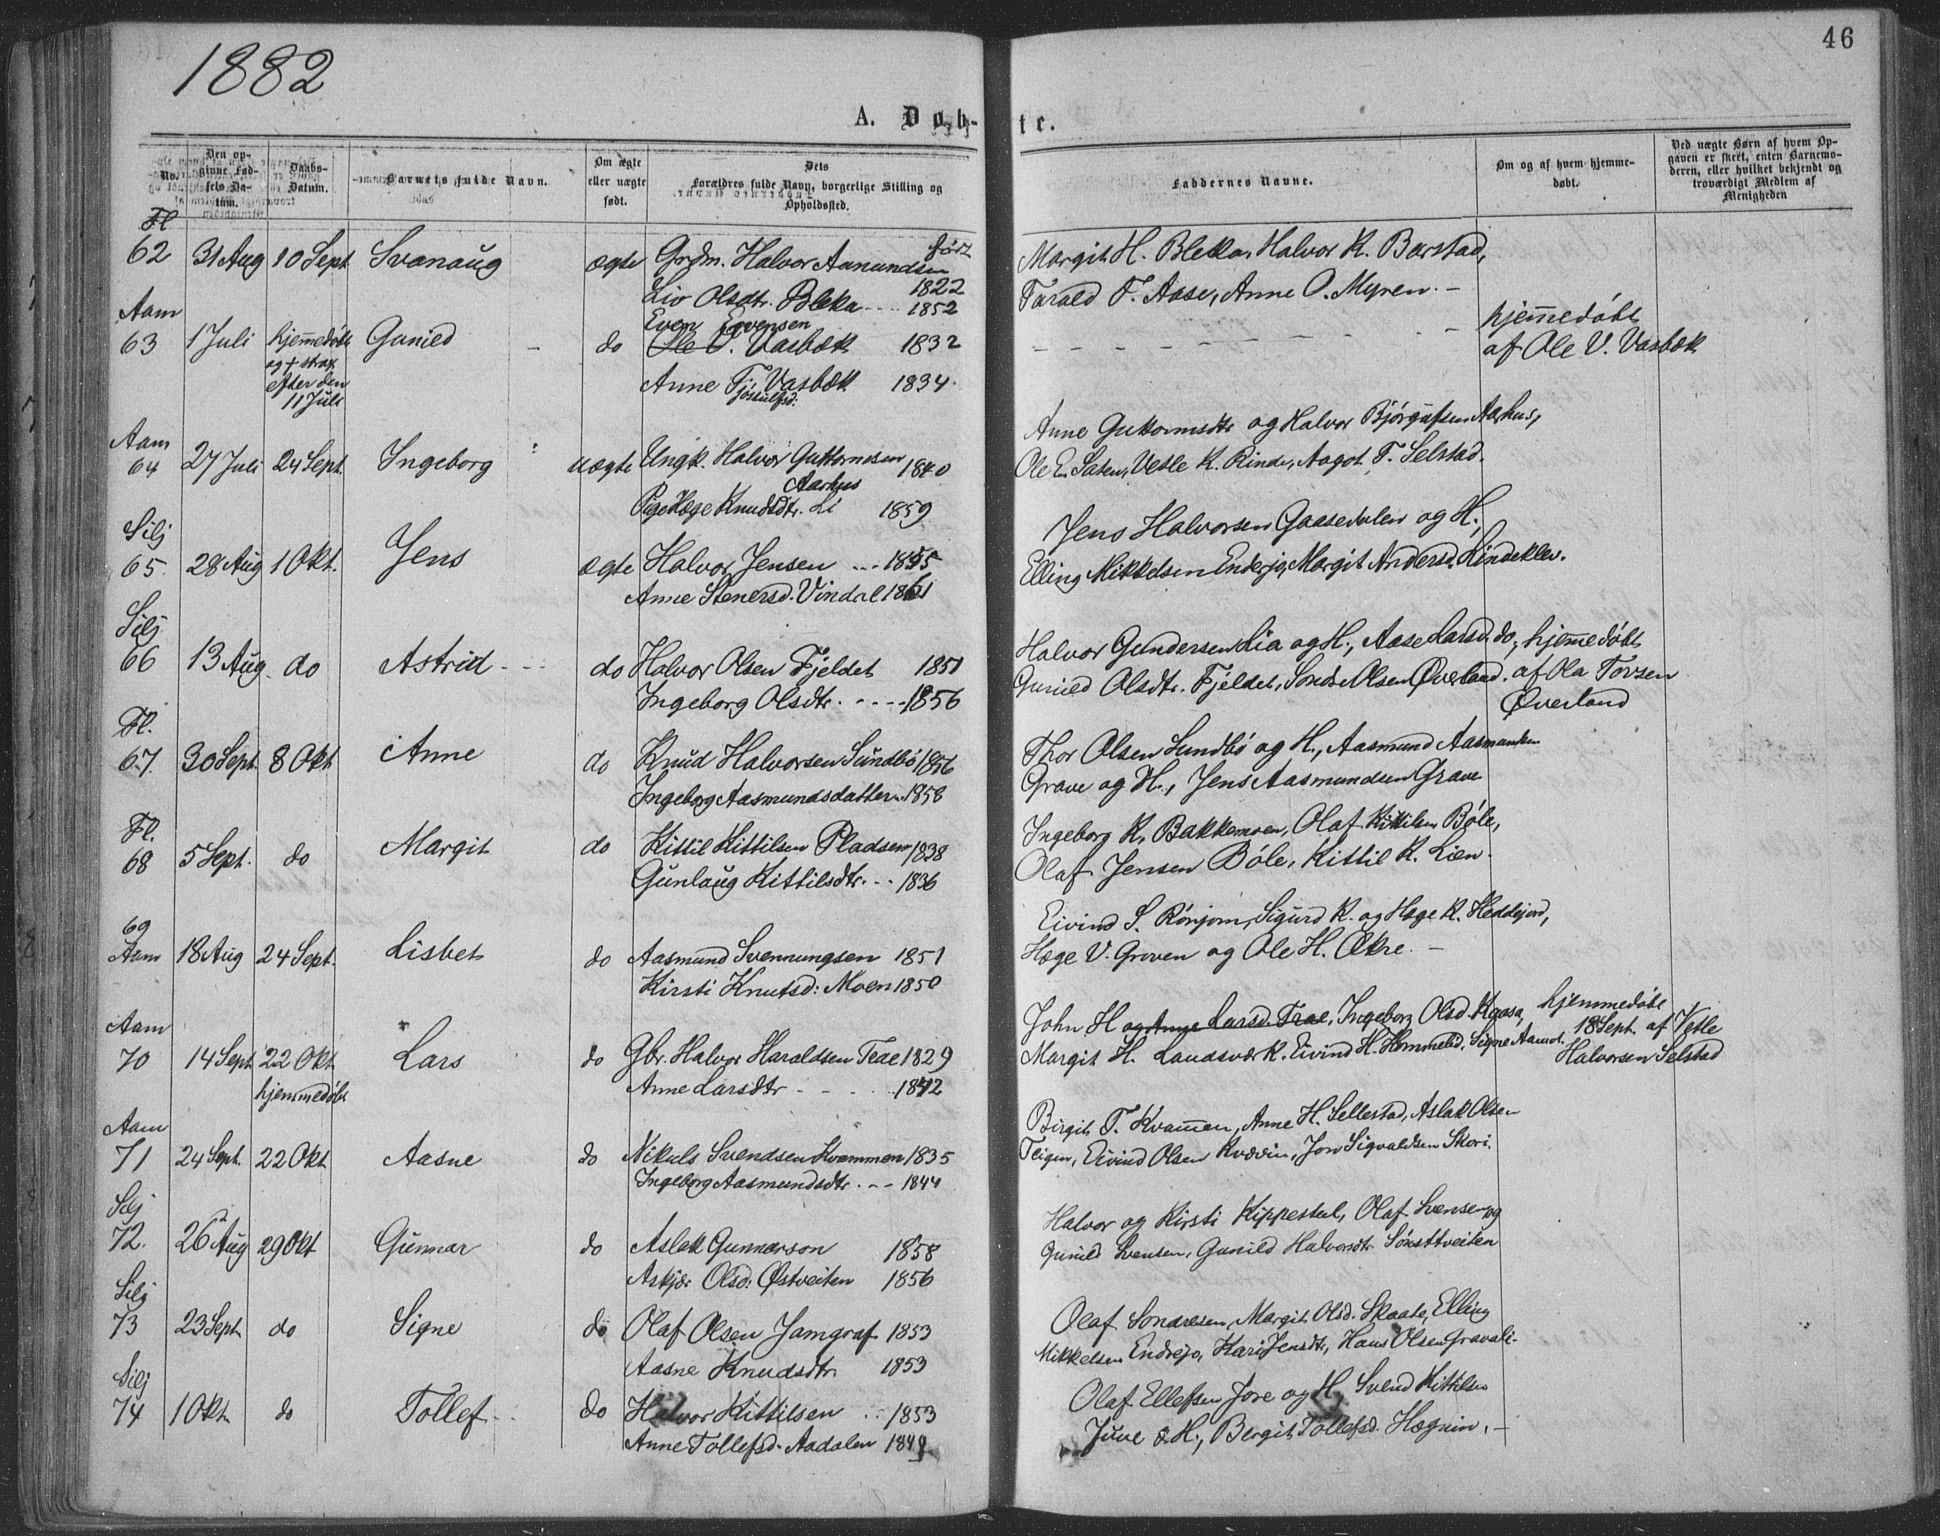 1882
46
A. Døb-
te.
No.
Den op-
givne Fød-
sels Da-
tum.
Daabs-
Datum.
Barnets fulde Navn.
Om ægte
eller uægte
født.
Dets
Forældres fulde Navn, borgerlige Stilling og
Opholdssted.
Faddernes Navne.
Om og af hvem hjemme-
døbt.
Ved uægte Børn af hvem Op-
gaven er skeet, enten Barnemo-
deren, eller hvilket bekjendt og
troværdigt Medlem af
Menigheden
Fl
62 31 Aug 10 Sept Svanaug ægte Grdm. Halvor Aamundsen født 1822
Liv Olsdtr. Bleka 1852
Margit H. Bleka, Halvor K. Barstad,
Tarald T. Aase, Anne O. Myren. -
Aam
63 1 Juli hjemmedøbt Gunild do Ole V. Vasbæk 1832
Even Evensen
og + strax
efter den
11 Juli
Anne Tj. Vasbæk 1834
Jostulfsd:
hjemmedøbt
af Ole V. Vasbæk
Aam
64 27 Juli 24 Sept. Ingeborg uægte Ungk. Halvor Guttormsen 1840
Aarhus
Pige Hæge Knudsdtr. Li 1859
Anne Guttormsdtr og Halvor Bjørgufsen Aarhus,
Ole E. Saten, Vetle K. Rinde, Aagot T. Selstad.
Silj
65 28 Aug 1 Okt. Jens ægte Halvor Jensen 1855
Anne Stenersd. Vindal 1861
Jens Halvorsen Gaasedalen og H.,
Elling Mikkelsen Enderjo, Margit Andersd. Lindeklev.
Silj
66 13 Aug. do Astrid do Halvor Olsen Fjeldet 1851
Ingeborg Olsdtr. 1856
Halvor Gundersen Lia og H., Aase Larsd. do,
Gunild Olsdtr. Fjeldet, Sondre Olsen Øverland.
hjemmedøbt
af Ola Torsen
Øverland
Fl.
67. 30 Sept. 8 Okt Anne do Knud Halvorsen Sundbø 1856
Ingeborg Aasmundsdatter 1858
Thor Olsen Sundbø og H., Aasmund Aasmundsen
Grave og H., Jens Aasmundsen Grave
Fl.
68 5 Sept. do Margit do Kittil Kittilsen Pladsen 1838
Gunlaug Kittilsdtr. 1836
Ingeborg K. Bakkemoen, Olaf Kittilsen Bøle,
Olaf Jensen Bøle, Kittil K. Lien.
69
Aam 18 Aug 24 Sept. Lisbet do Aasmund Svennungsen 1851
Kirsti Knutsd: Moen 1850
Eivind S. Rønjom, Sigurd K. og Hæge K. Heddejord,
Hæge V. Groven og Ole H. Økre. -
Aam
70 14 Sept 22 Okt Lars do Gbr. Halvor Haraldsen Træe 1829
hjemmedøbt
Anne Larsdtr 1842
John H og Anne Larsd. Træe, Ingeborg Olsd. Kaasa,
Margit H. Laudsværk. Eivind H. Hommelid. Signe Aamot.
hjemmedøbt
18 Sept. af Vetle
Halvorsen Selstad
Aam
71 24 Sept. 22 Okt Aasne do Nikuls Svendsen Kvammen 1835
Ingeborg Aasmundsdtr. 1844
Birgit T. Kvammen, Anne H. Sellestad, Aslak Olsen
Teigen, Eivind Olsen Kvævin, Jon Sigvaldsen Skori.
Silj
72. 26 Aug 29 Okt Gunnar do Aslak Gunnarson 1858
Askjær Olsd: Østveiten 1856
Halvor og Kirsti Kippestul, Olaf Svensen og
Gunild Svensen, Gunild Halvorsdtr Sønsttveiten
Silj
73 23 Sept do Signe do Olaf Olsen Jamgraf 1853
Aasne Knudsdtr. 1853
Olaf Sondresen, Margit Olsd. Skaate, Elling
Mikkelsen Endrejo, Kari Jensdtr., Hans Olsen Gravali.
Silj
74 1 Okt do Tollef do Halvor Kittilsen 1853
Anne Tollefsd. Aadalen 1849
Olaf Ellefsen Jore og H. Svend Kittilsen
Juve & H., Bergit Tollefsd. Hægnin. -